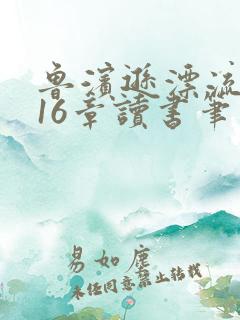 魯濱遜漂流
16章讀書筆
易如塵
未经同意禁止转载